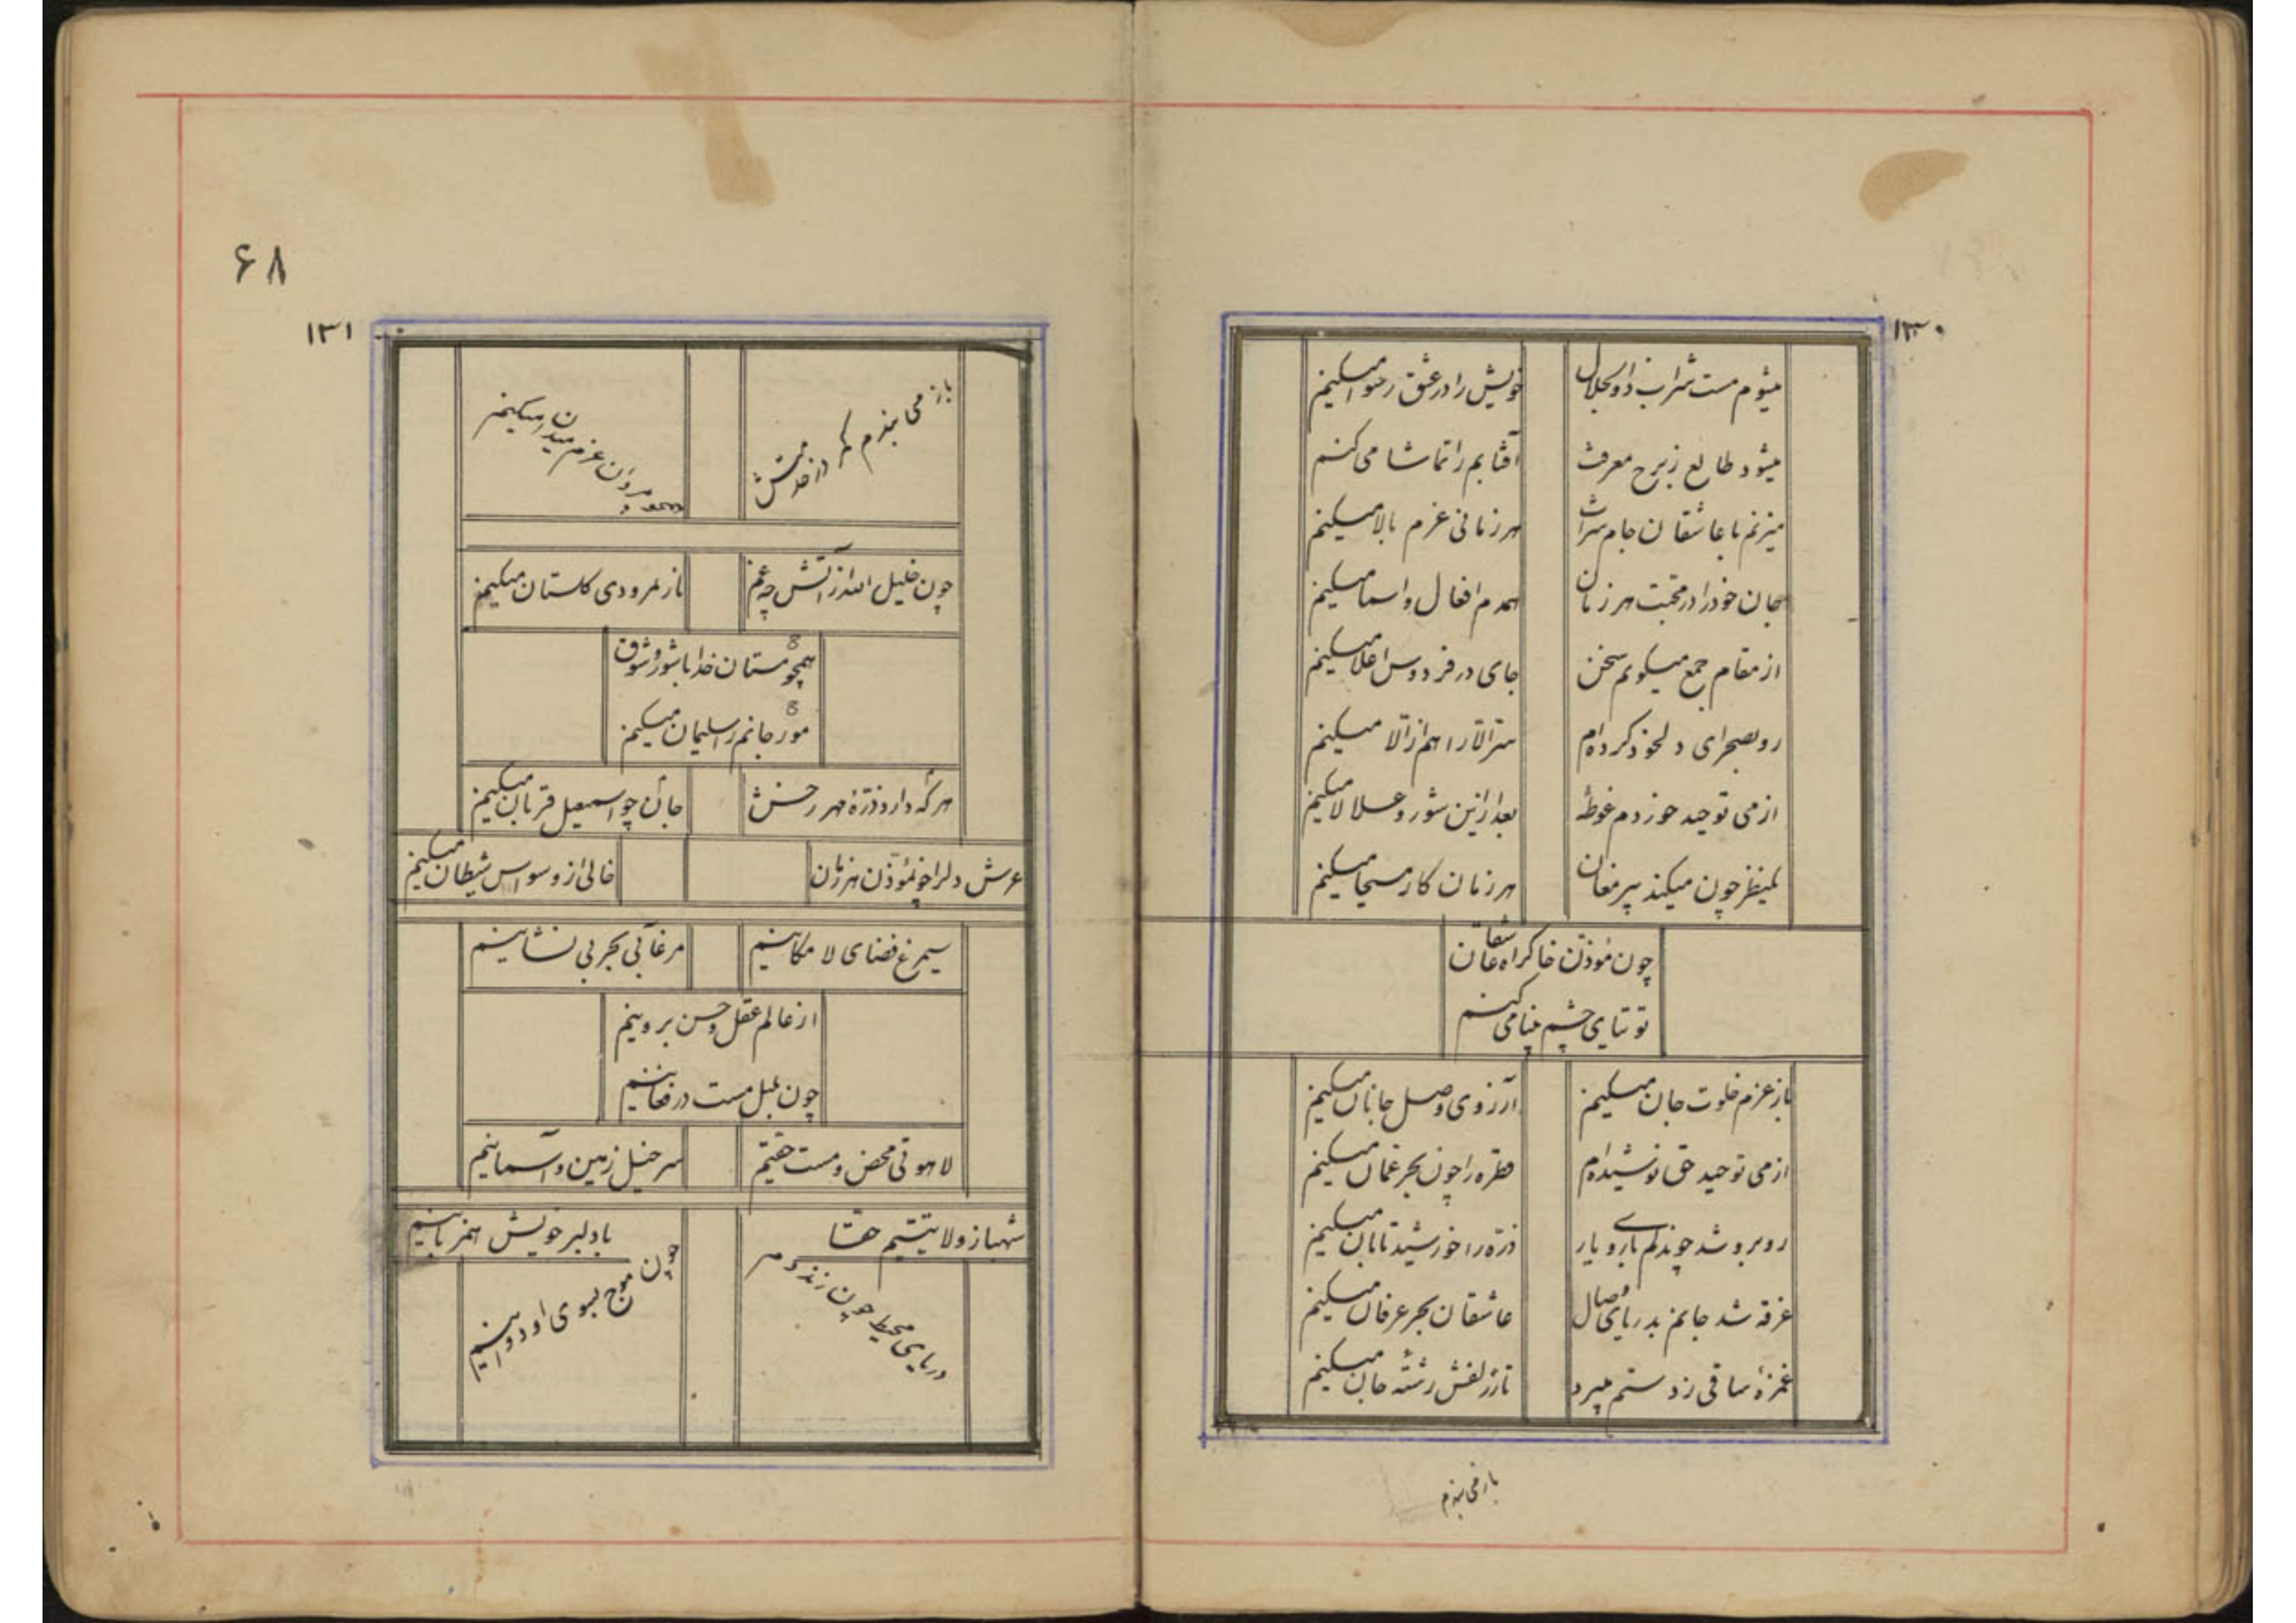 ۱۳۰
میشوم مست شراب ذوالجلال
خویش را در عشق رسوا میکنم
میشود طالع ز برج معرفت
آفتابم را تماشا می کنم
میزنم با عاشقان جام شراب
هر زمانی عزم بالا میکنم
جان خود را در محبت هر زمان
همدم افعال و اسما میکنم
از مقام جمع میگویم سخن
جای در فردوس اعلا میکنم
رو بصحرای دل خود کرده ام
سر الا را هم از الا میکنم
از می توحید خوردم غوطهٔ
بعد ازین شور و علالا میکنم
یکنظر چون میکند پیر مغان
هر زمان کار مسیحا میکنم
چون مؤذن خاک راه عاشقان
توتیای چشم بینا می کنم
باز عزم خلوت جان میکنم
آرزوی وصل جانان میکنم
از می توحید حق نوشیده ام
قطره را چون بحر عمان میکنم
روبرو شد چو ندلم با روی یار
ذره را خورشید تابان میکنم
غرقه شد جانم بدریای وصال
عاشقان بحر عرفان میکنم
غمزهٔ ساقی ز دستم میبرد
تا ز زلفش رشتهٔ جان میکنم
باز می بندم
۶۸
۱۳۱
باز می بندم کمر در خدمتش
همچو مردان عزم میدان میکنم
چون خلیل الله از آتش چه غم
نار نمرودی گلستان میکنم
همچو مستان خدا با شور و شوق
مور جانم را سلیمان میکنم
هر که دارد ذرهٔ مهر رخش
جان چو اسمعیل قربان میکنم
عرش دلرا چو مؤذن هر زمان
خالی از وسواس شیطان میکنم
سیمرغ فضای لا مکانیم
مرغابی بحر بی نشانیم
از عالم عقل و حس برونیم
چون بلبل مست در فغانیم
لاهوتی محض و مست حقیم
سر خیل زمین و آسمانیم
شهباز ولایتیم حقا
با دلبر خویش همزبانیم
دریای محیط چون زند دم
چون موج بسوی او دوانیم